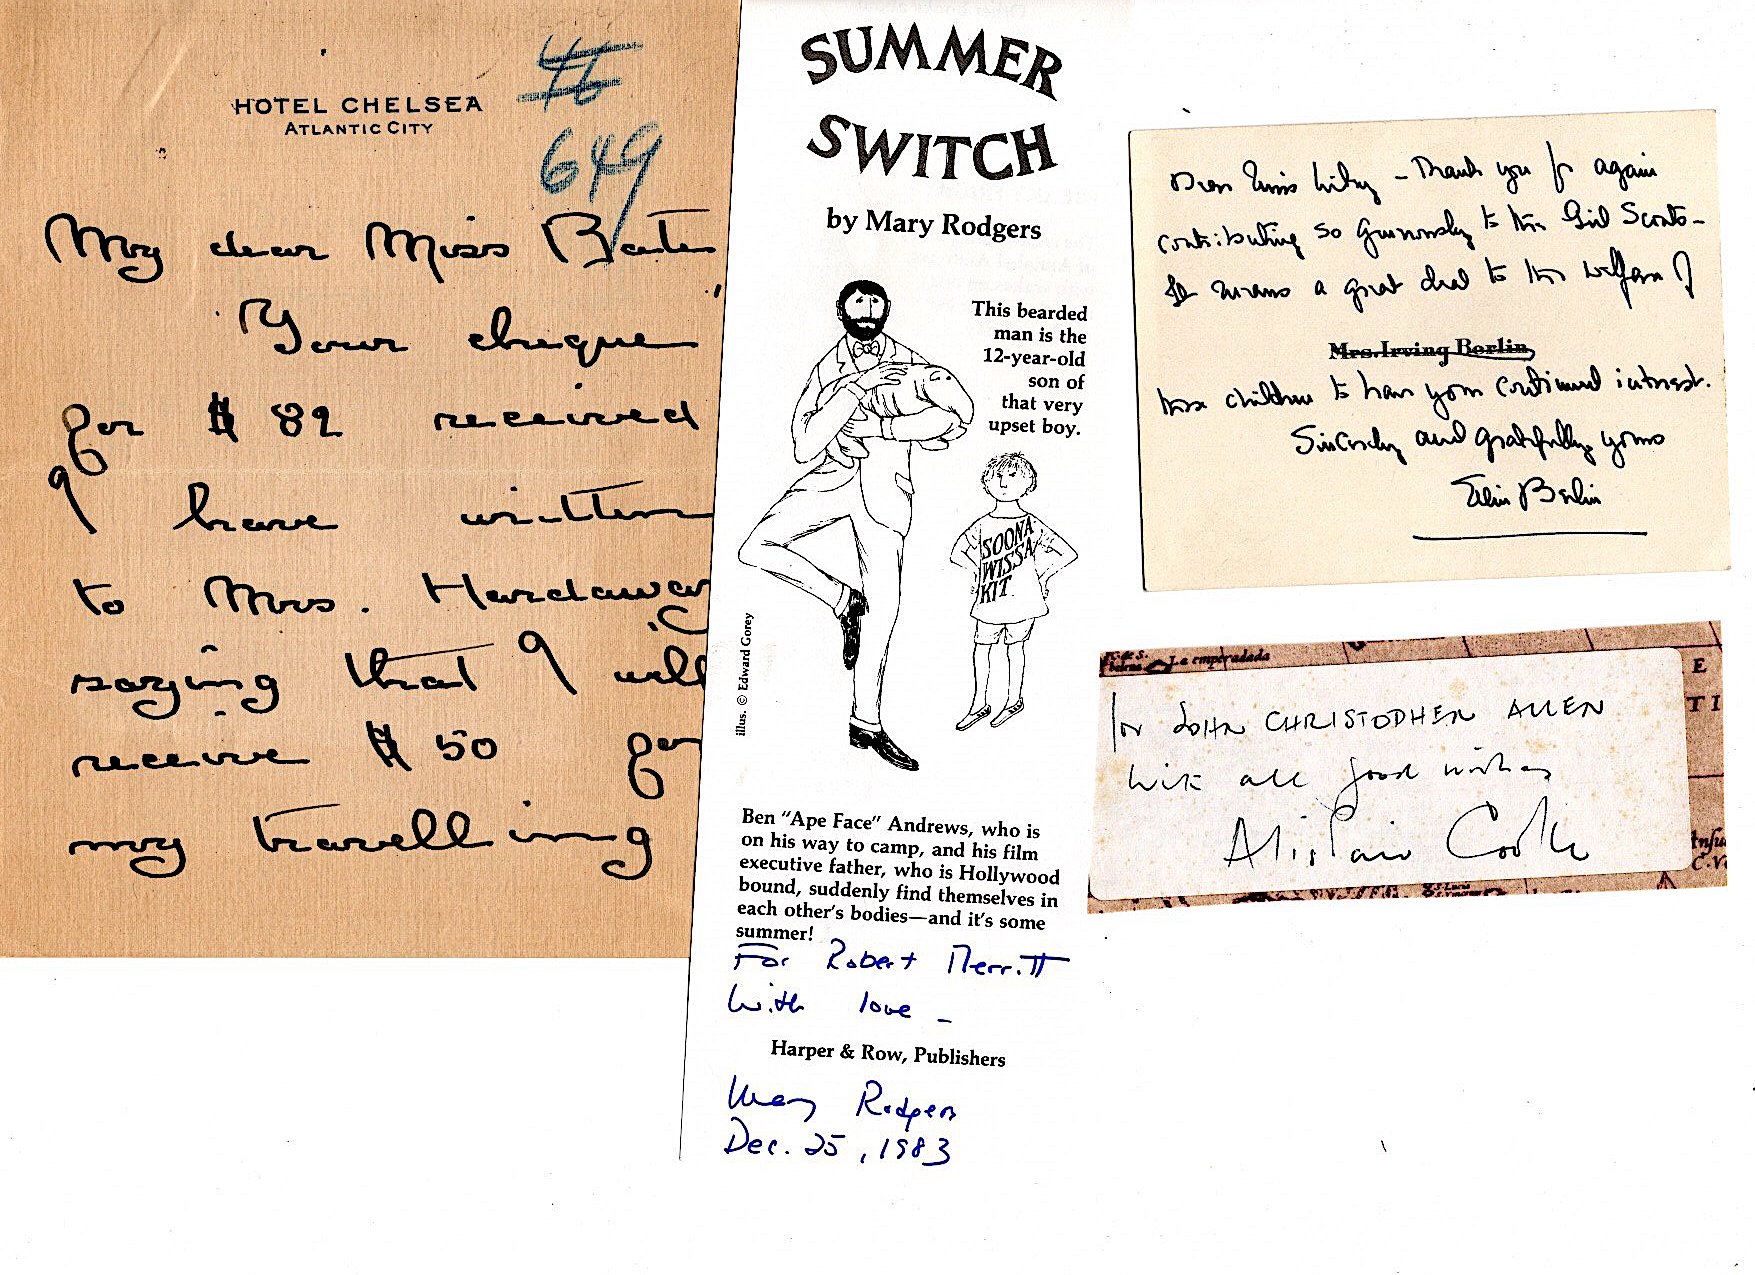 HOTEL CHELSEA
ATLANTIC CITY
46
649
My dear Miss Bates,
Your cheque
for $ 82 received
I have written
to Mrs. Hardaway,
saying that I will
receive $ 50 for
my travelling
SUMMER
SWITCH
by Mary Rodgers
This bearded
man is the
12-year-old
son of
that very
upset boy.
SOONA
WISSA
KIT.
illus. © Edward Gorey
Ben "Ape Face" Andrews, who is
on his way to camp, and his film
executive father, who is Hollywood
bound, suddenly find themselves in
each other's bodies—and it's some
summer!
For Robert Merritt
With love –
Harper & Row, Publishers
Mary Rodgers
Dec. 25, 1983
Dear Miss – Thank you for again
contributing so generously to the Girl Scouts –
It means a great deal to the welfare of
Mrs. Irving Berlin
these children to have your continued interest.
Sincerely and gratefully yours
Ellin Berlin
La emperadada
E
T I
JOHN CHRISTOPHER ALLEN
with all good wishes
Alistair Cooke
Insu
C. V